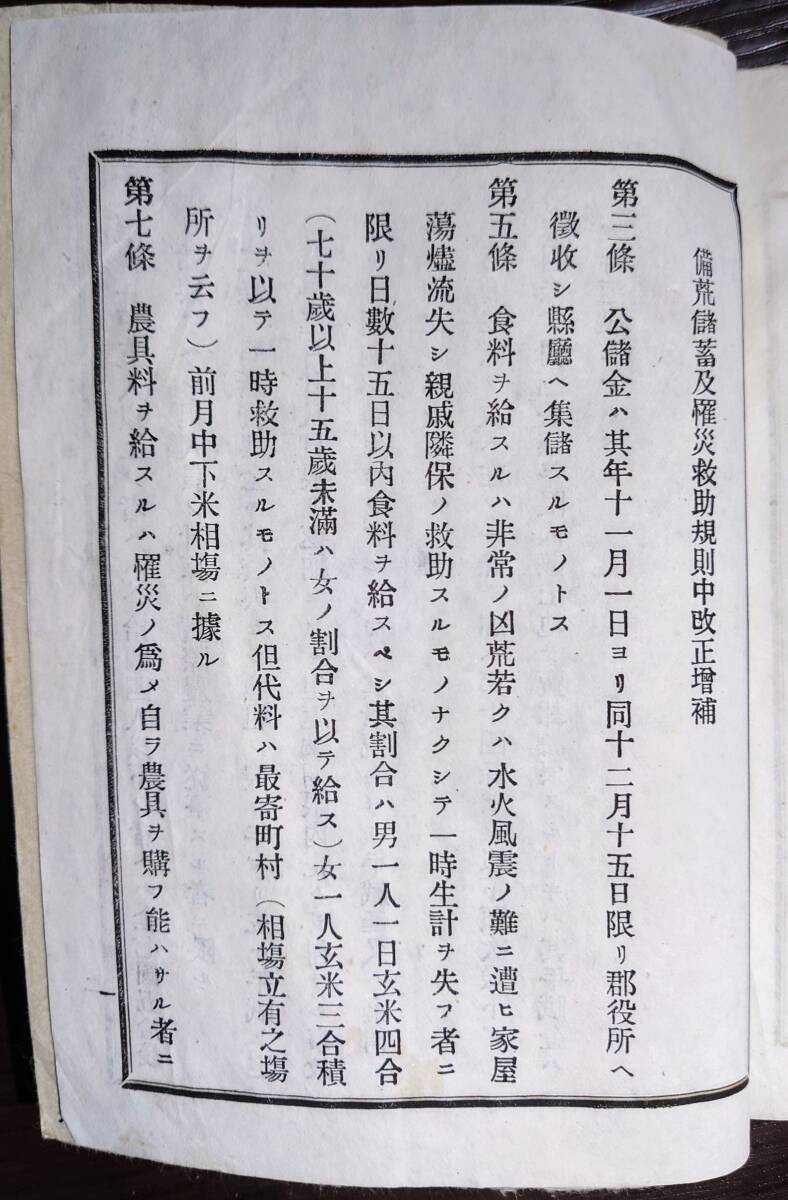 備荒儲蓄及罹災救助規則中改正增補
第三條　公儲金ハ其年十一月一日ヨリ同十二月十五日限リ郡役所ヘ
徵收シ縣廳ヘ集儲スルモノトス
第五條　食料ヲ給スルハ非常ノ凶荒若クハ水火風震ノ難ニ遭ヒ家屋
蕩燼流失シ親戚隣保ノ救助スルモノナクシテ一時生計ヲ失フ者ニ
限リ日數十五日以內食料ヲ給スベシ其割合ハ男一人一日玄米四合
（七十歲以上十五歲未滿ハ女ノ割合ヲ以テ給ス）女一人玄米三合積
リヲ以テ一時救助スルモノトス但代料ハ最寄町村（相塲立有之塲
所ヲ云フ）前月中下米相塲ニ據ル
第七條　農具料ヲ給スルハ罹災ノ爲メ自ラ農具ヲ購フ能ハサル者ニ
一